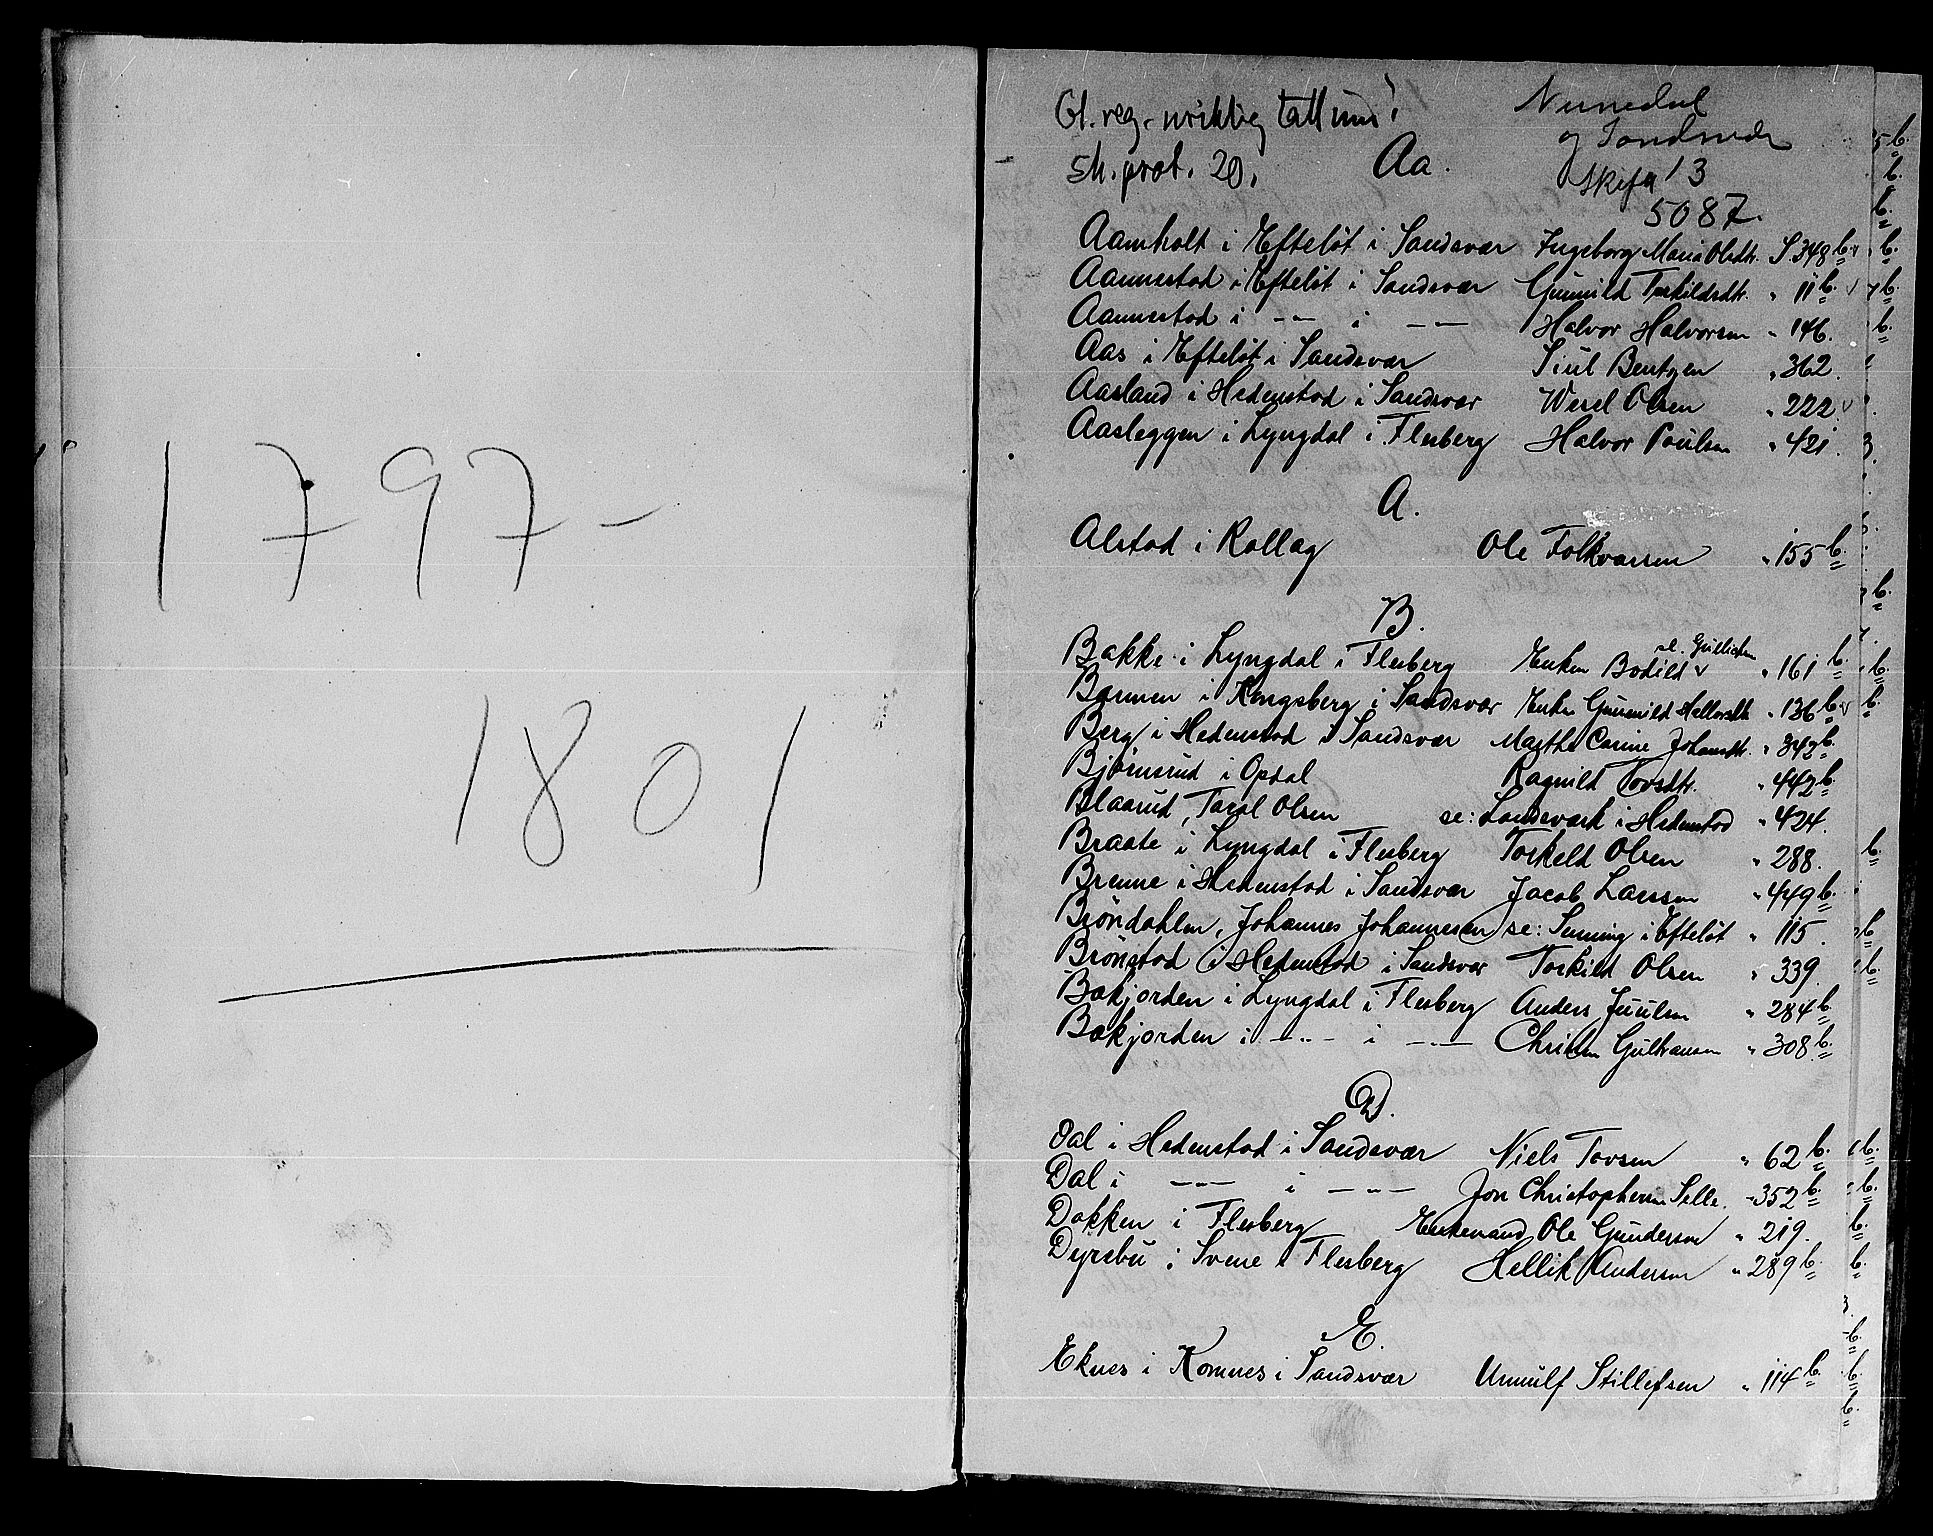 1797-
1801
Gl. reg. uriktig
Sk. prot. 20.
Numedal
og Sandsvær
Skifte 13
5087.
Aa.
Aamholt i Efteløt i Sandsvær Ingeborg Maria Olsdtr. S. 348 b.
Aannestad i Efteløt i Sandsvær Gunnild Torkildsdtr. " 11 b. v
Aannestad i -"- i -"- Halvor Halvorsen " 146.
Aas i Efteløt i Sandsvær Siul Bentzen " 362.
Aasland i Hedenstad i Sandsvær Wesel Olsen " 222. v
Aasleggen i Lyngdal i Flesberg Halvor Poulsen " 421.
A.
Alstad i Rollag Ole Folkvarsen " 155 b.
B.
Bakke i Lyngdal i Flesberg Enken Bodild v sl. Gullichsen " 161 b.
Barmen i Kongsberg i Sandsvær Enken Gunnild Hellovsdtr. " 136 b. v
Berg i Hedenstad i Sandsvær Marthe Carine Johansdtr. " 342 b.
Bjørnsrud i Opdal Ragnild Tovsdtr. " 442 b.
Blaarud, Taral Olsen se: Landsverk i Hedenstad " 424.
Braate i Lyngdal i Flesberg Torkeld Olsen " 288.
Brenne i Hedenstad i Sandsvær Jacob Larssen " 449 b.
Brøndahlen, Johannes Johannesen se: Senning i Efteløt " 115.
Brønstad i Hedenstad i Sandsvær Torkild Olsen " 339.
Bækjorden i Lyngdal i Flesberg Anders Juulsen " 284 b.
Bækjorden i -"- i -"- Christen Gulbransen " 308 b.
D.
Dal i Hedenstad i Sandsvær Niels Tovsen " 62 b.
Dal i -"- i -"- Jon Christophersen Selle. " 352 b.
Dokken i Flesberg Enkemand Ole Gundersen " 219.
Dyrebu i Svene i Flesberg Hellik Andersen " 289 b.
E.
Eknes i Komnes i Sandsvær Unnulf Stillefsen " 114 b.